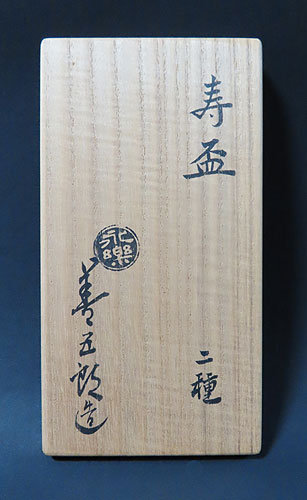 寿盃
二種
永樂
善五郎造